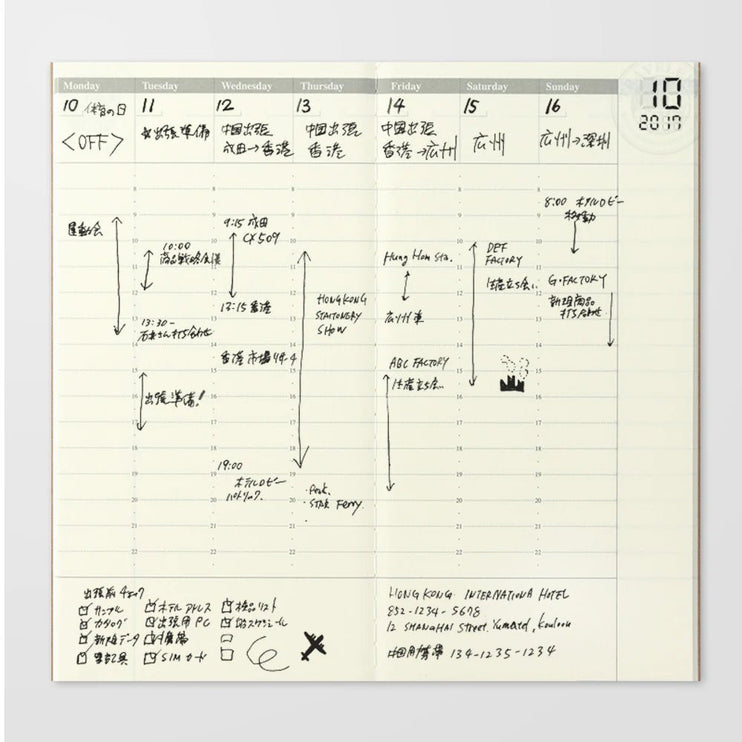 Monday
Tuesday
Wednesday
Thursday
Friday
Saturday
Sunday
10 体育の日
11
12
13
14
15
16
10
2017
<OFF>
☆出張準備
中国出張
成田→香港
中国出張
香港
中国出張
香港→広州
広州
広州→深圳
運動会
10:00
商品戦略会議
13:30-
打ち合わせ
出張準備!
9:15 成田
CX509
13:15 香港
香港市場リサーチ
19:00
ホテルロビー
HONGKONG
STATIONERY
SHOW
STAR Ferry.
Hung Hom Sta.
広州東
ABC FACTORY
生産立ち会い
DEF
FACTORY
生産立ち会い
8:00 ホテルロビー
移動
G・FACTORY
新規商品
打ち合わせ
8
9
10
11
12
13
14
15
16
17
18
19
20
21
22
出張前チェック
サンプル
カタログ
新規データ
筆記具
ホテルアドレス
出張用PC
携帯
SIMカード
検品リスト
スケジュール
HONG KONG INTERNATIONA HOTEL
852-1234-5678
12 SHANGHAI Street. Yumatd, Kouloon
中国用携帯 134-1235-1234